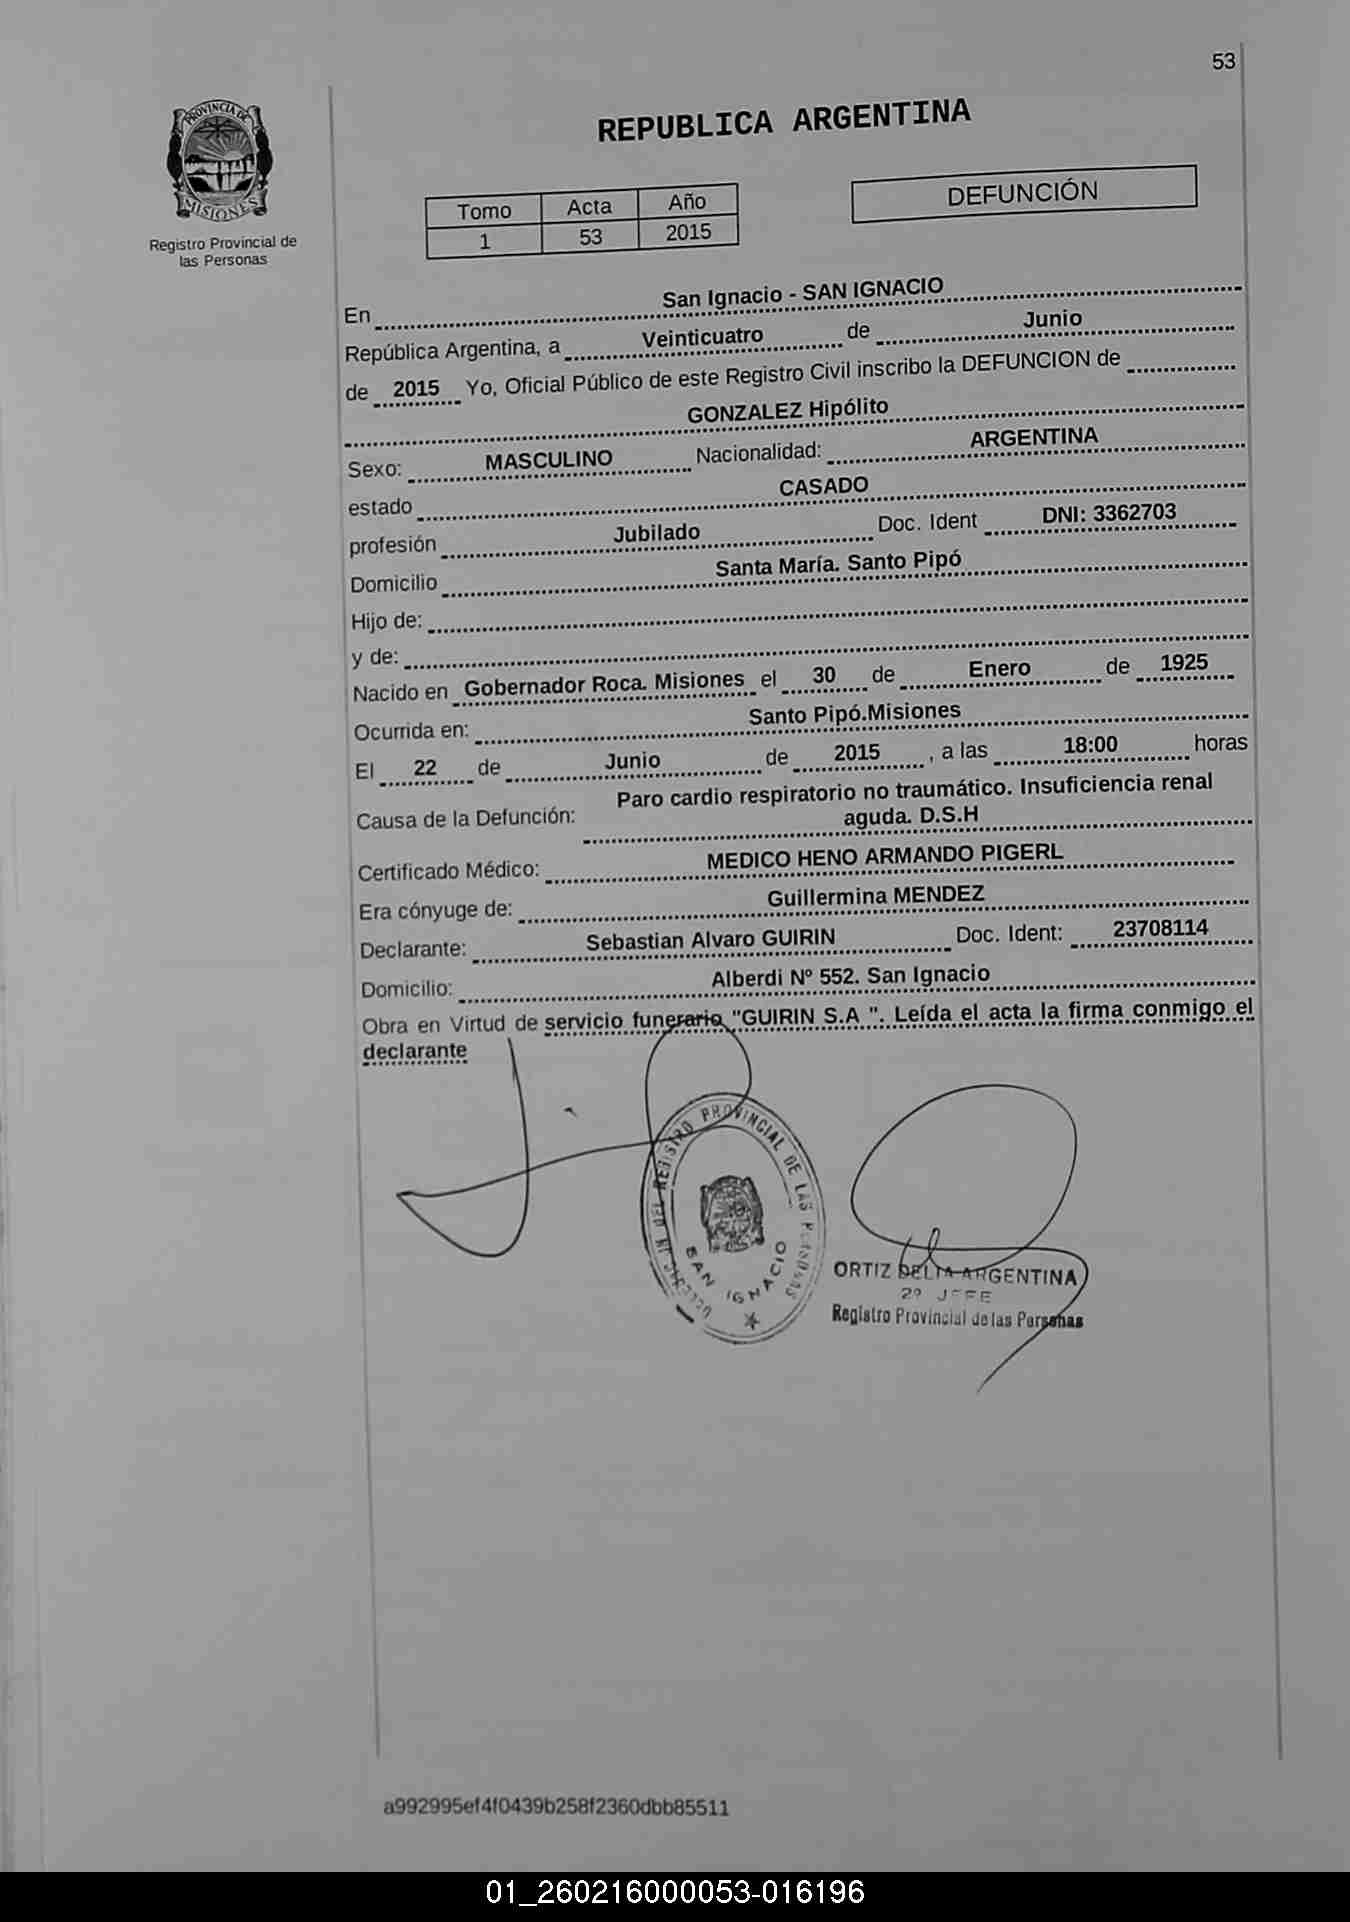 53
PROVINCIA DE
MISIONES
Registro Provincial de
las Personas
REPUBLICA ARGENTINA
Tomo Acta Año
1 53 2015
DEFUNCIÓN
En San Ignacio - SAN IGNACIO
República Argentina, a Veinticuatro de Junio
de 2015 Yo, Oficial Público de este Registro Civil inscribo la DEFUNCION de
GONZALEZ Hipólito
Sexo: MASCULINO Nacionalidad: ARGENTINA
estado CASADO
profesión Jubilado Doc. Ident DNI: 3362703
Domicilio Santa María. Santo Pipó
Hijo de:
y de:
Nacido en Gobernador Roca. Misiones el 30 de Enero de 1925
Ocurrida en: Santo Pipó.Misiones
El 22 de Junio de 2015 , a las 18:00 horas
Causa de la Defunción: Paro cardio respiratorio no traumático. Insuficiencia renal
aguda. D.S.H
Certificado Médico: MEDICO HENO ARMANDO PIGERL
Era cónyuge de: Guillermina MENDEZ
Declarante: Sebastian Alvaro GUIRIN Doc. Ident: 23708114
Domicilio: Alberdi Nº 552. San Ignacio
Obra en Virtud de servicio funerario "GUIRIN S.A ". Leída el acta la firma conmigo el
declarante
DEL REGISTRO PROVINCIAL DE LAS PERSONAS
SAN IGNACIO
ORTIZ DELIA ARGENTINA
2º JEFE
Registro Provincial de las Personas
a992995ef4f0439b258f2360dbb85511
01_260216000053-016196